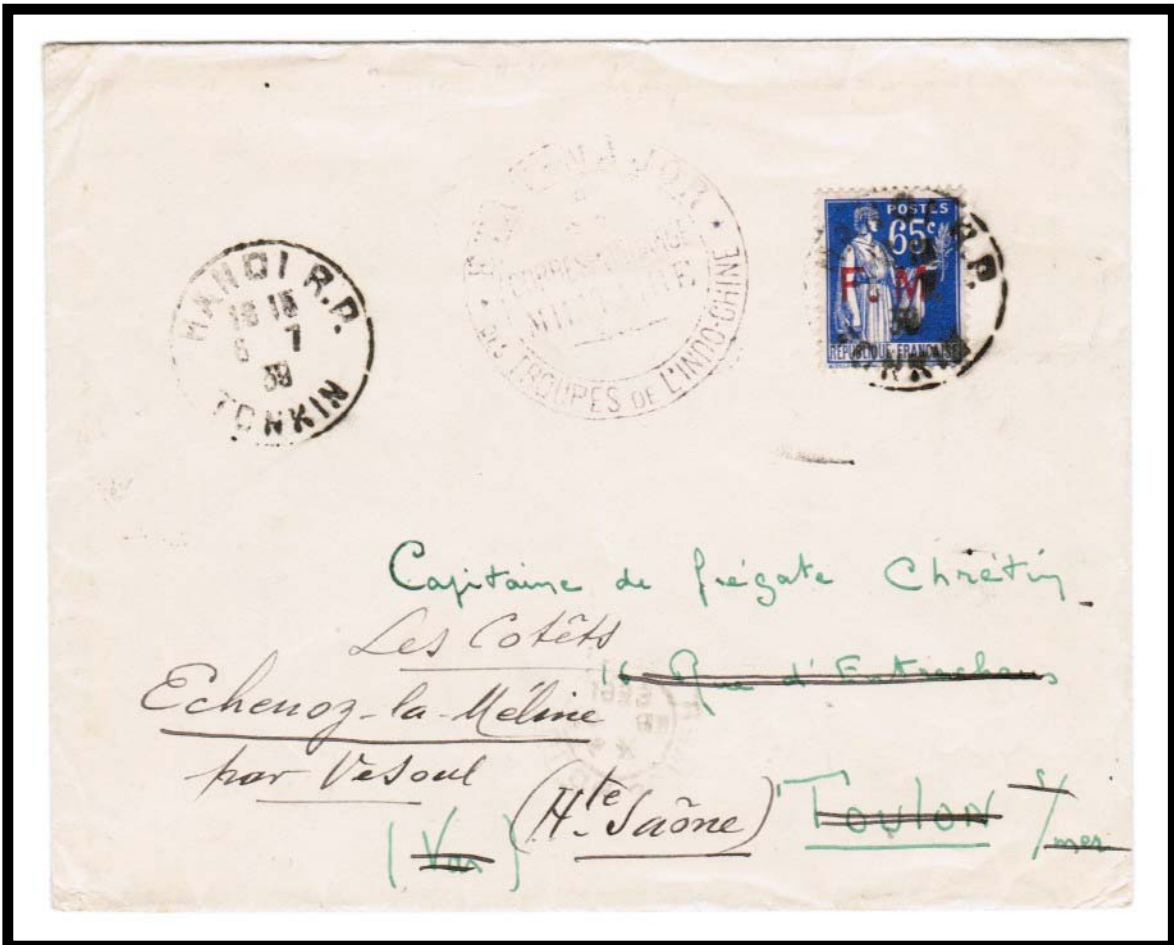 HANOI R.P.
18 15
6 7
39
TONKIN
CORRESPONDANCE
MILITAIRE
DES TROUPES DE L'INDO-CHINE
POSTES
65c
F. M.
REPUBLIQUE FRANCAISE
R.P.
39
Capitaine de frégate Chrétin
Les Cotêts
16 Rue d'Entrechaus
Echenoz-la-Méline
par Vesoul
(Hte Saône) Toulon s/mer
(Var)